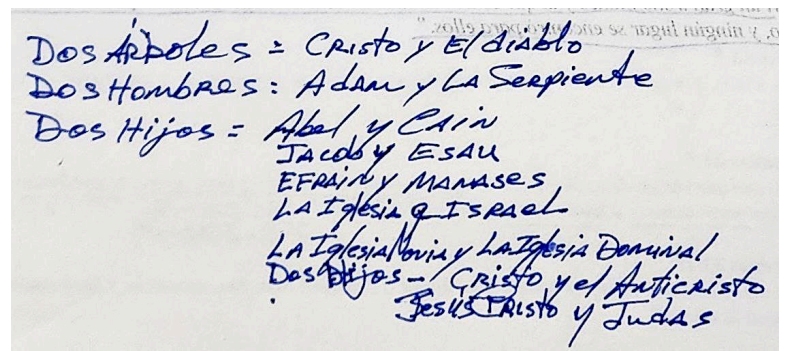 o, y ningún lugar se encontró para ellos."
Dos Árboles = Cristo y El diablo
Dos Hombres: Adam y La Serpiente
Dos Hijos = Abel y Cain
Jacob y Esau
Efrain y Manases
La Iglesia e Israel
La Iglesia Novia y La Iglesia Dominal
Dos Hijos - Cristo y el Anticristo
JesusCristo y Judas